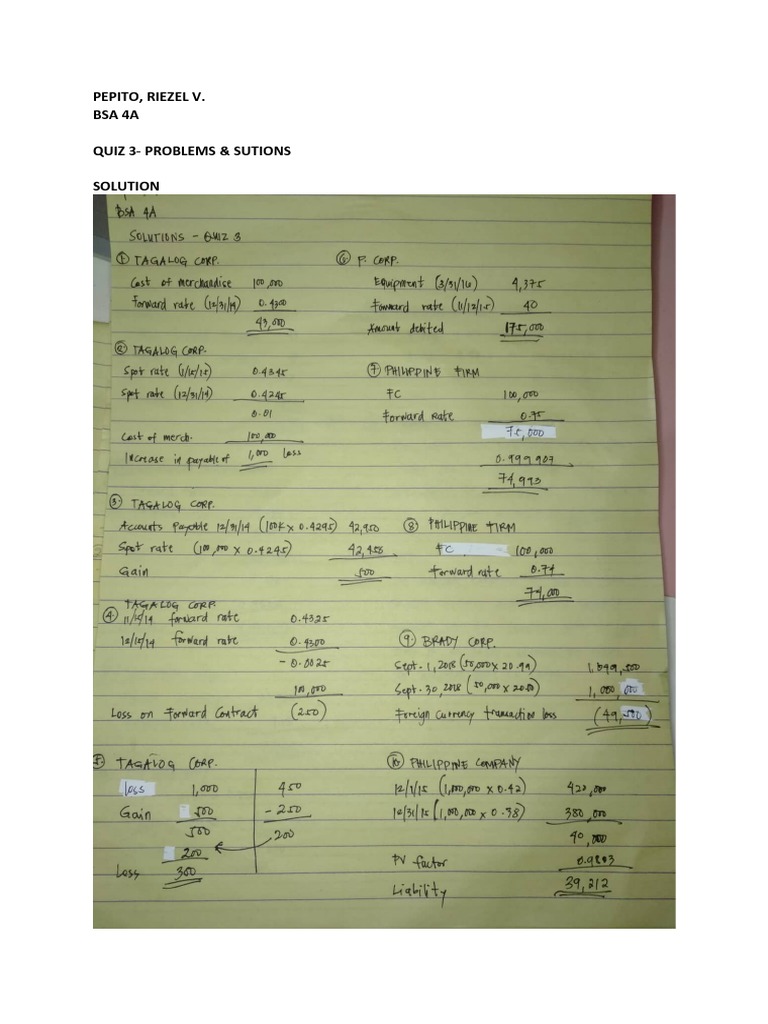 PEPITO, RIEZEL V.
BSA 4A
QUIZ 3- PROBLEMS & SUTIONS
SOLUTION
BSA 4A
SOLUTIONS - QUIZ 3
① TAGALOG CORP.
Cost of merchandise 100,000
Forward rate (12/31/14) 0.4300
43,000
② TAGALOG CORP.
Spot rate (1/15/15) 0.4345
Spot rate (12/31/14) 0.4245
0.01
Cost of merch. 100,000
Increase in payable of 1,000 loss
③ TAGALOG CORP.
Accounts Payable 12/31/14 (100K x 0.4295) 42,950
Spot rate (100,000 x 0.4245) 42,450
Gain 500
④ TAGALOG CORP.
11/15/14 forward rate 0.4325
12/15/14 forward rate 0.4300
- 0.0025
100,000
Loss on Forward Contract (250)
5. TAGALOG CORP.
loss 1,000 450
Gain 500 - 250
500 200
200
Loss 300
⑥ P. CORP.
Equipment (3/31/16) 4,375
Forward rate (11/12/15) 40
Amount debited 175,000
⑦ PHILIPPINE FIRM
FC 100,000
Forward Rate 0.75
75,000
0.999907
74,993
⑧ PHILIPPINE FIRM
FC 100,000
Forward rate 0.74
74,000
⑨ BRADY CORP.
Sept. 1, 2018 (50,000 x 20.99)
Sept. 30, 2018 (50,000 x 20.50)
Foreign Currency transaction loss (49,500)
⑩ PHILIPPINE COMPANY
12/1/15 (1,000,000 x 0.42) 420,000
12/31/15 (1,000,000 x 0.38) 380,000
40,000
PV factor 0.9803
Liability 39,212